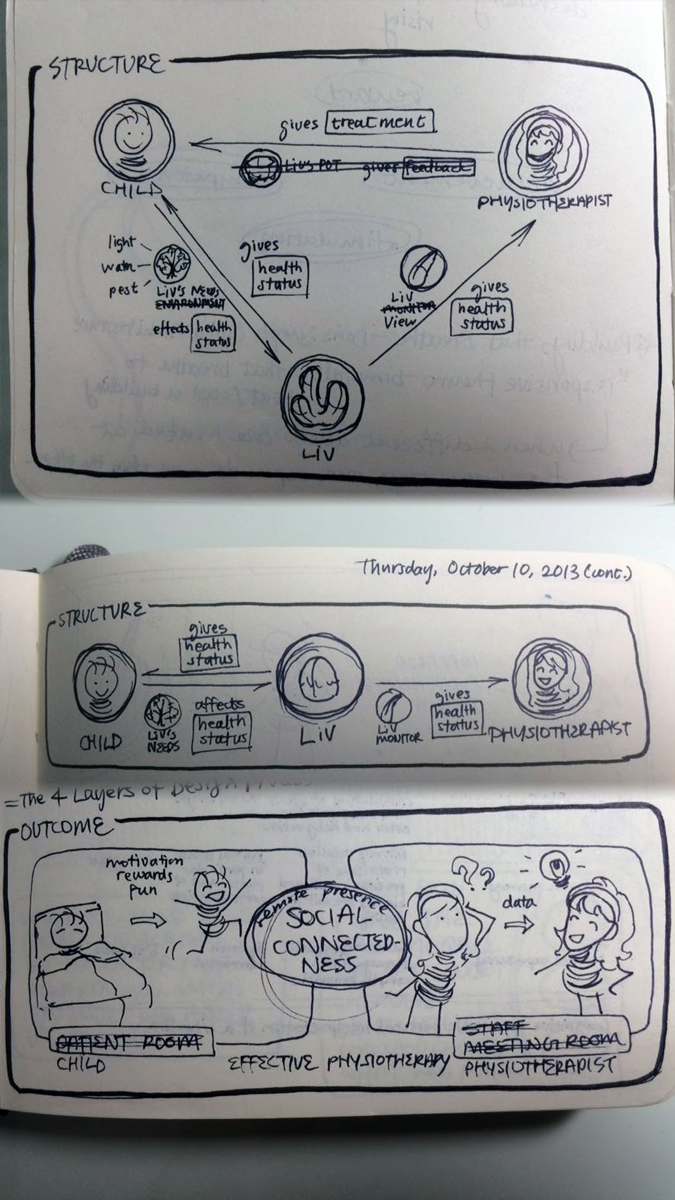 STRUCTURE
gives treatment
LIV'S POT gives feedback
CHILD
PHYSIOTHERAPIST
light
water
pest
LIV'S NEEDS
ENVIRONMENT
effects health
status
gives
health
status
LIV
MONITOR
View
gives
health
status
LIV
Thursday, October 10, 2013 (cont.)
STRUCTURE
gives
health
status
affects
health
status
LIV'S
NEEDS
CHILD
LIV
LIV
MONITOR
gives
health
status
PHYSIOTHERAPIST
= The 4 Layers of Design
OUTCOME
motivation
rewards
fun
remote presence
SOCIAL
CONNECTED-
NESS
??
data
PATIENT ROOM
CHILD
EFFECTIVE PHYSIOTHERAPY
STAFF
MEETING ROOM
PHYSIOTHERAPIST